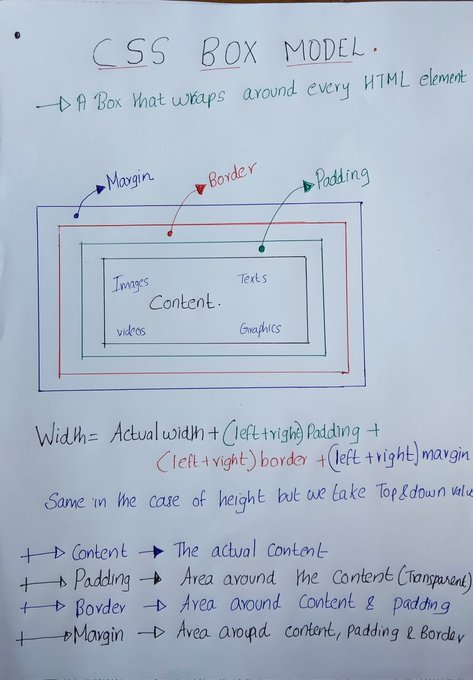 CSS BOX MODEL.
A Box that wraps around every HTML element
Margin
Border
Padding
Images
Texts
Content.
videos
Graphics
Width= Actual width + (left+right) Padding +
(left+right) border + (left+right) margin
Same in the case of height but we take Top & down value
Content The actual content
Padding Area around the content (Transparent)
Border Area around content & padding
Margin Area around content, padding & Border